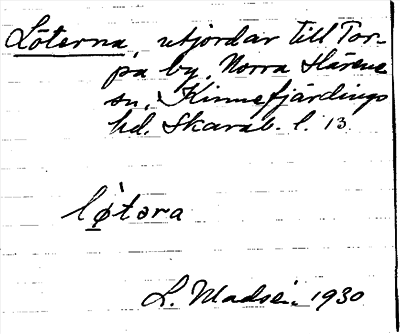 Löterna, utjordar till Tor-
pa by, Norra Härene
sn, Kinnefjärdings
hd. Skarab. l. 13
lø̀təra
L. Madsen 1930